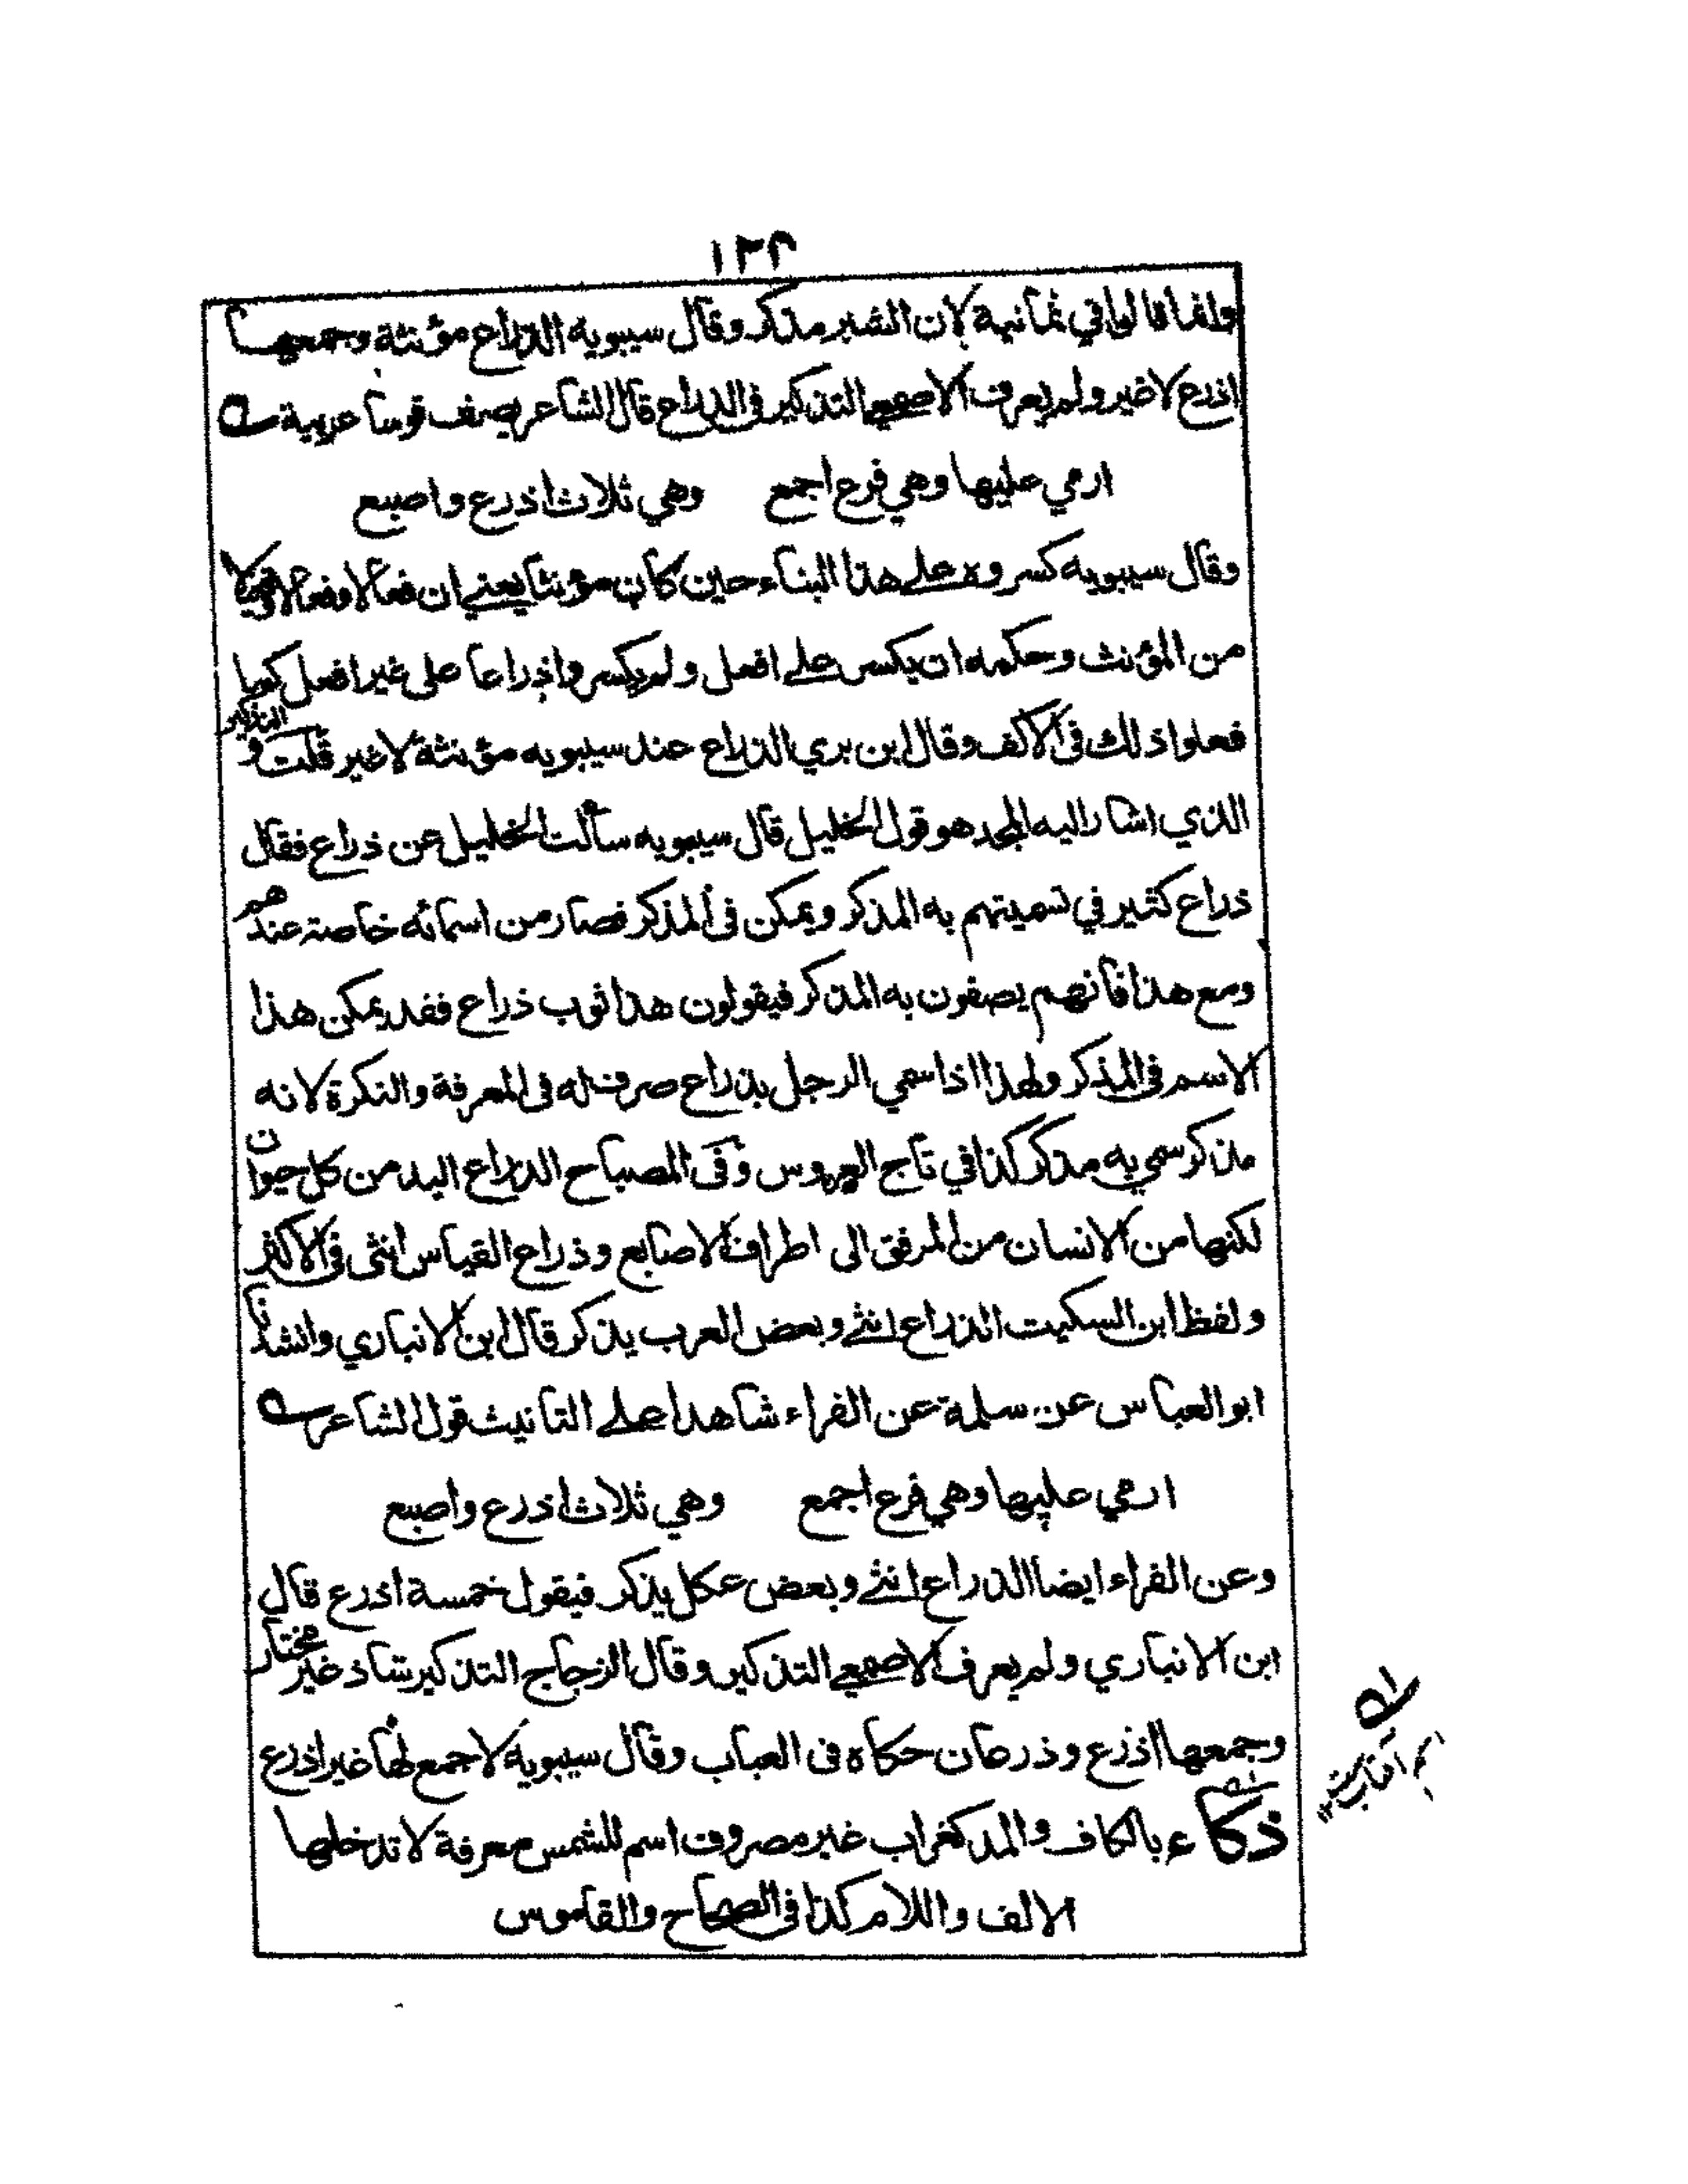 ١٣٢
وانما قالوا في ثمانية لان الشبر مذكر وقال سيبويه الذراع مؤنثة وجمعها
اذرع لاغير ولم يعرف الاصمعي التذكير في الذراع قال الشاعر يصف قوسا عربية
ارمي عليها وهي فرع اجمع وهي ثلاث اذرع واصبع
وقال سيبويه كسروه على هذا البناء حين كان مؤنثا يعني ان فعالا وفعالا وفعيلا
من المؤنث وحكمه ان يكسر على افعل ولم يكسروا ذراعا على غير افعل كما
فعلوا ذلك في الاكف وقال ابن بري الذراع عند سيبويه مؤنثة لاغير قلت والتذكير
الذي اشار اليه المجد هو قول الخليل قال سيبويه سألت الخليل عن ذراع فقال
ذراع كثير في تسميتهم به المذكر ويمكن في المذكر فصار من اسمائه خاصة عندهم
ومع هذا فانهم يصفون به المذكر فيقولون هذا ثوب ذراع فقد يمكن هذا
الاسم في المذكر ولهذا اذا سمي الرجل بذراع صرف له في المعرفة والنكرة لانه
مذكر سمي به مذكر كذا في تاج العروس وفى المصباح الذراع اليد من كل حيوان
لكنها من الانسان من المرفق الى اطراف الاصابع وذراع القياس انثى في الاكثر
ولفظ ابن السكيت الذراع انثى وبعض العرب يذكر قال ابن الانباري وانشدنا
ابو العباس عن سلمة عن الفراء شاهدا على التانيث قول الشاعر
ارمي عليها وهي فرع اجمع وهي ثلاث اذرع واصبع
وعن الفراء ايضا الذراع انثى وبعض عكل يذكر فيقول خمسة اذرع قال
ابن الانباري ولم يعرف الاصمعي التذكير وقال الزجاج التذكير شاذ غير مختار
وجمعها اذرع وذرعان حكاه في العباب وقال سيبويه لا جمع لها غير اذرع
ذكاء بالكاف والمد كغراب غير مصروف اسم للشمس معرفة لا تدخلها
الالف واللام كذا في الصحاح والقاموس